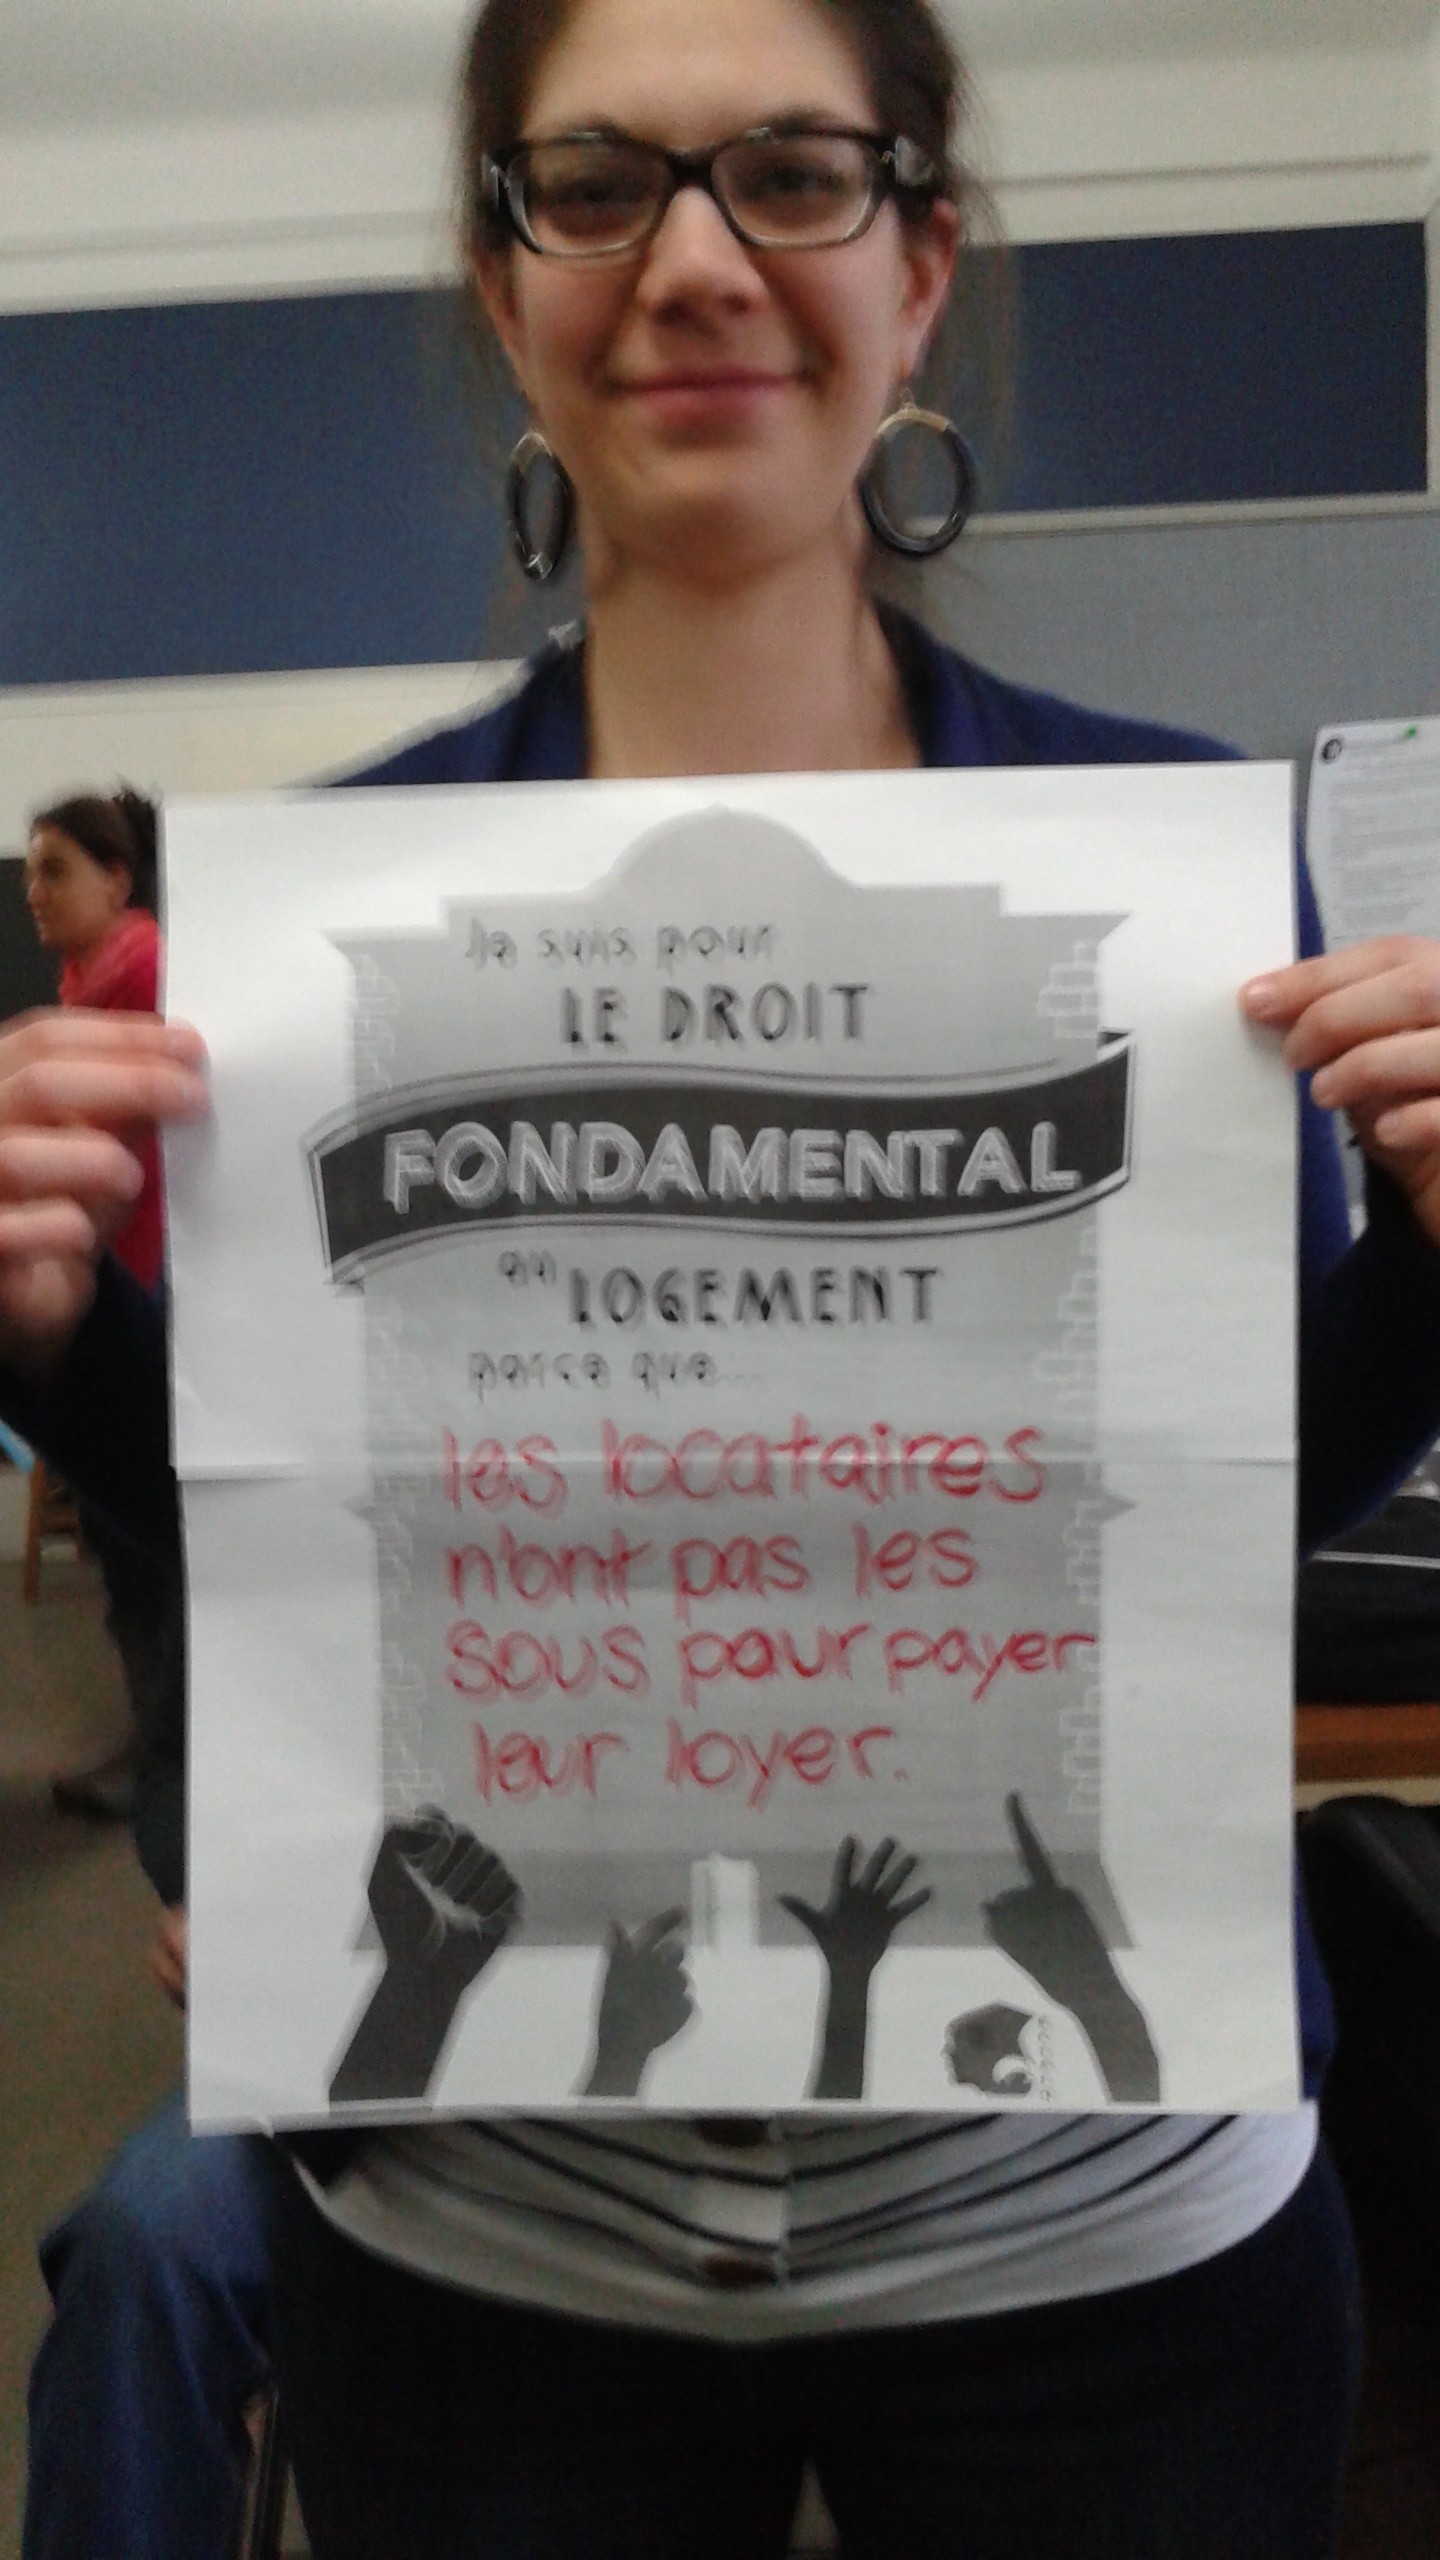 Je suis pour
LE DROIT
FONDAMENTAL
au LOGEMENT
parce que...
les locataires
n'ont pas les
sous pour payer
leur loyer.